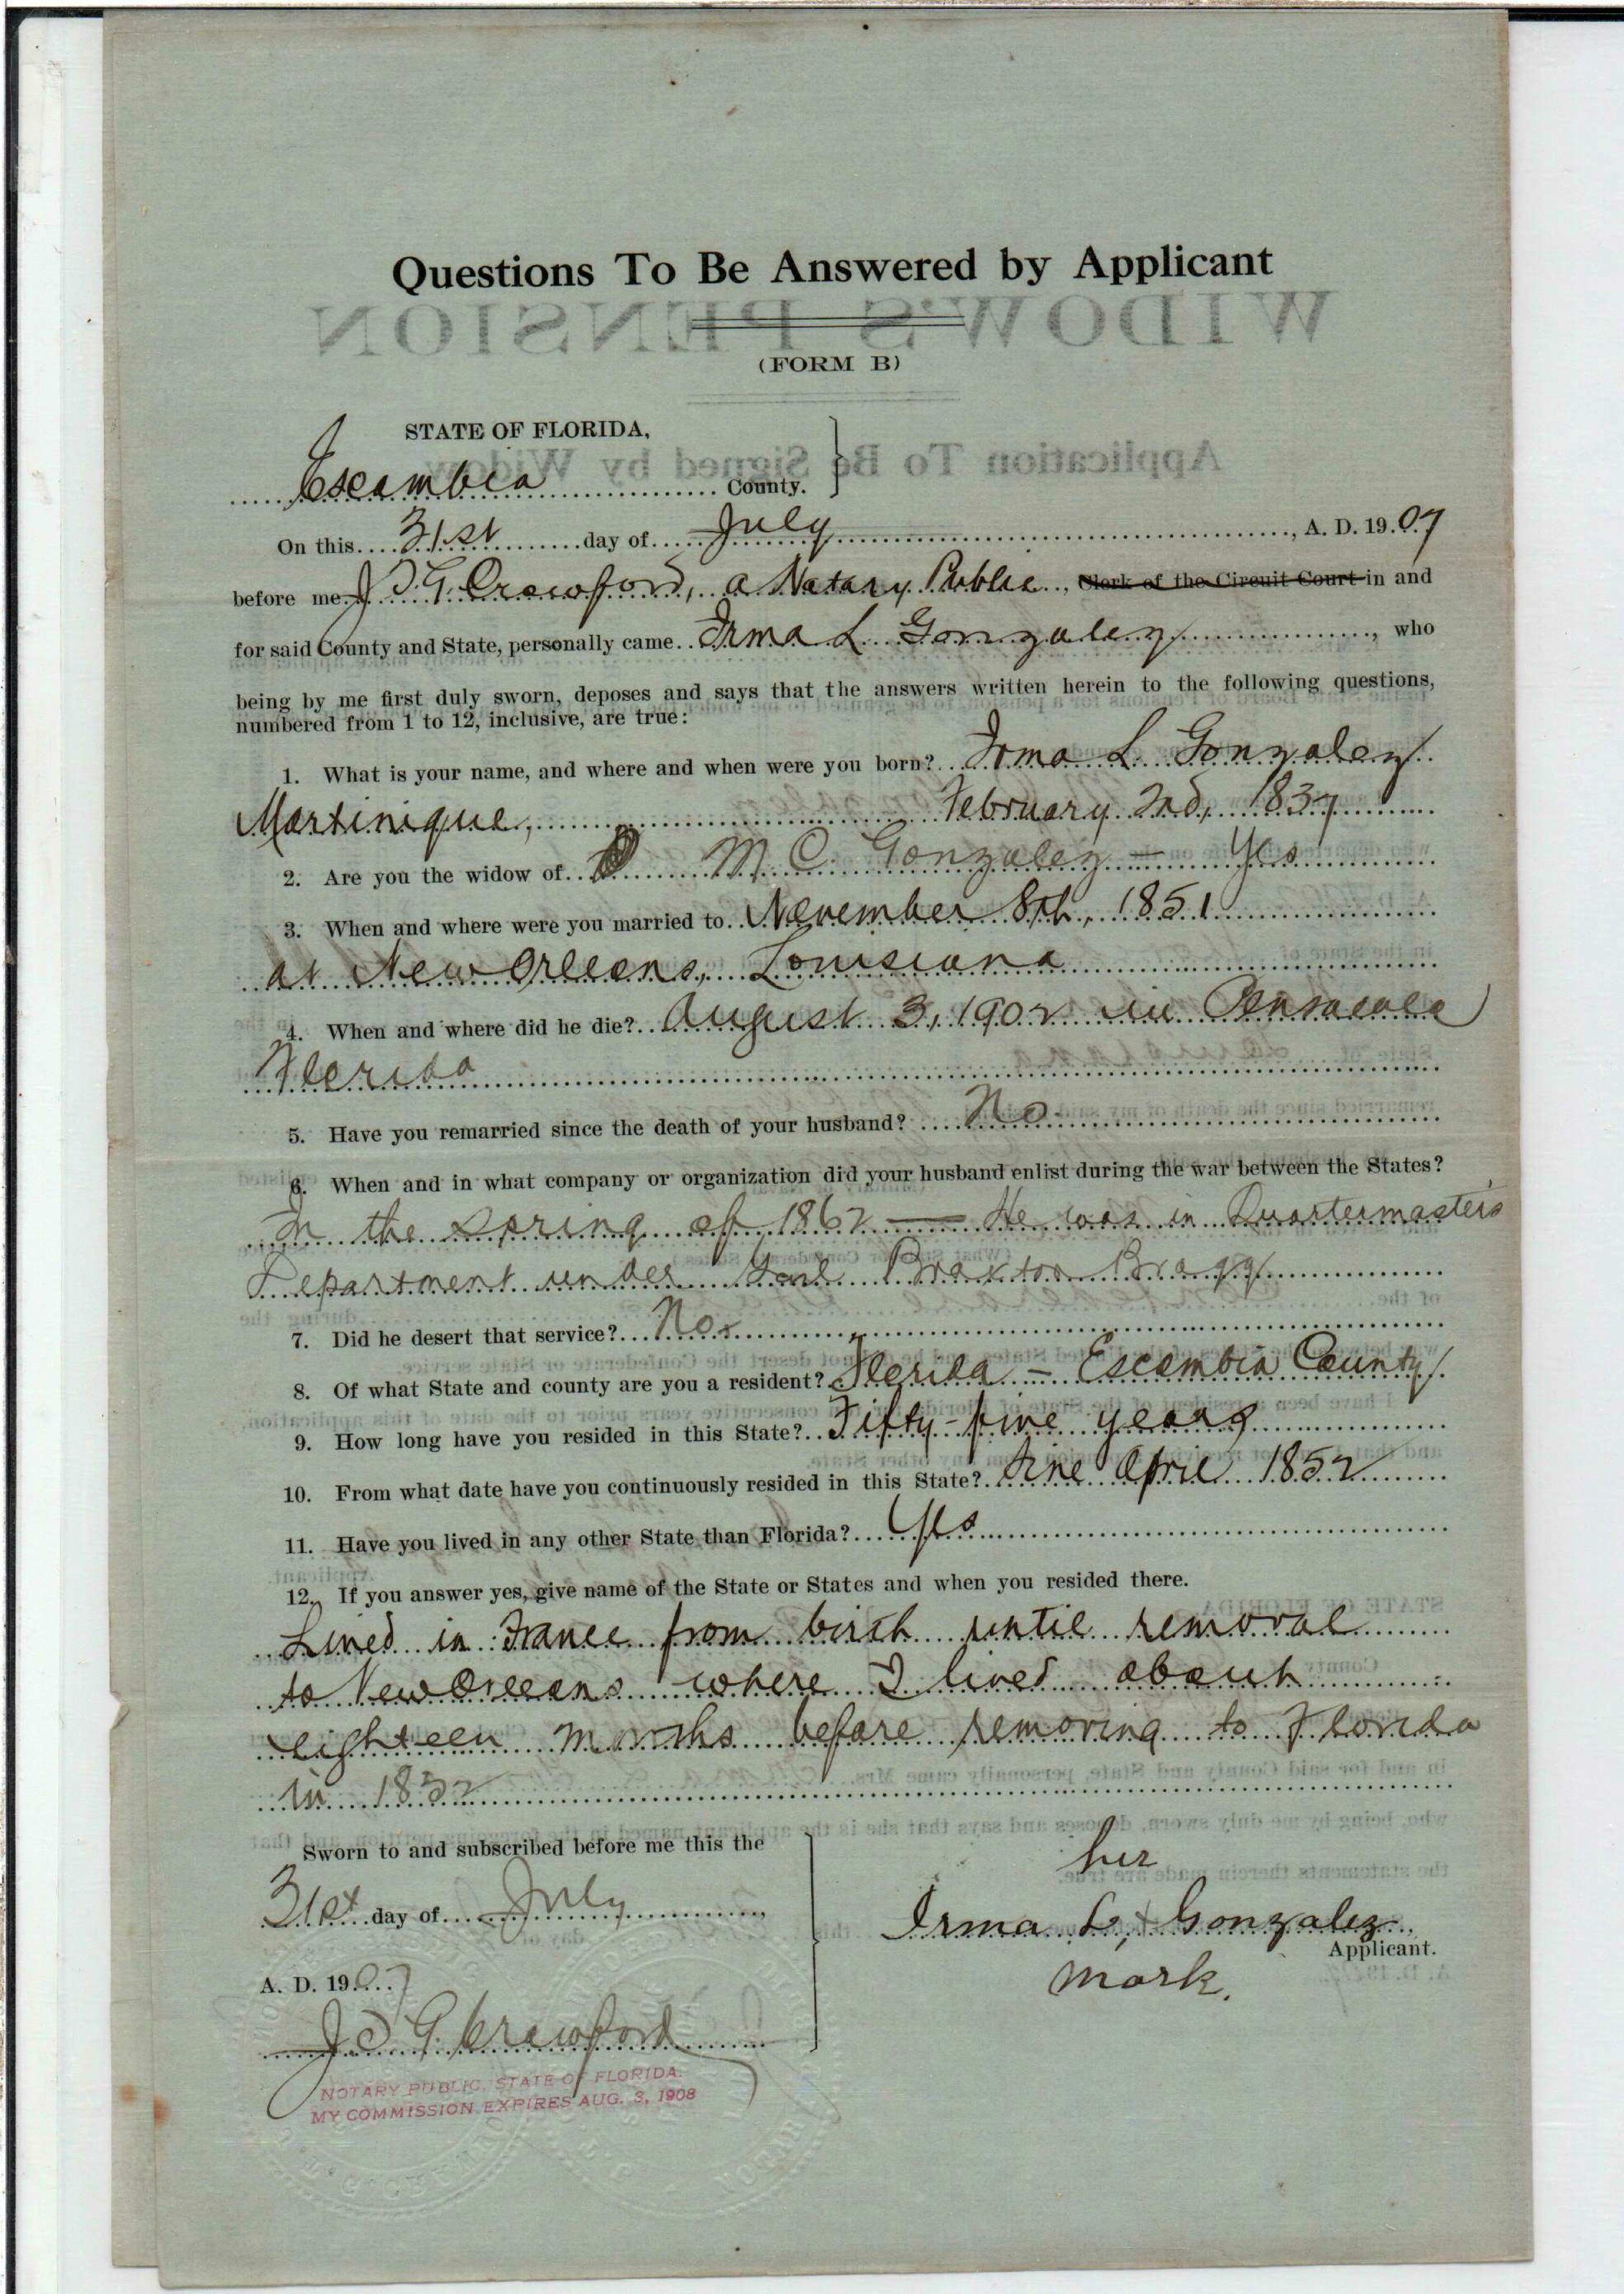 Questions To Be Answered by Applicant
WIDOW'S PENSION
(FORM B)
STATE OF FLORIDA,
Application To Be Signed by Widow
Escambia County.
On this 31st day of July, A. D. 1907
before me J. G. Crawford, a Notary Public, Clerk of the Circuit Court in and
for said County and State, personally came Irma L Gonzalez, who
being by me first duly sworn, deposes and says that the answers written herein to the following questions,
numbered from 1 to 12, inclusive, are true:
1. What is your name, and where and when were you born? Irma L. Gonzalez
Martinique, February 2nd, 1837
2. Are you the widow of M C. Gonzalez — Yes
3. When and where were you married to November 8th, 1851
at New Orleans, Louisiana
4. When and where did he die? August 3, 1902 in Pensacola
Florida
5. Have you remarried since the death of your husband? No
6. When and in what company or organization did your husband enlist during the war between the States?
In the spring of 1862 — He was in Quartermasters
Department under Genl Braxton Bragg
7. Did he desert that service? No.
8. Of what State and county are you a resident? Florida – Escambia County
9. How long have you resided in this State? Fifty-five years
10. From what date have you continuously resided in this State? April 1852
11. Have you lived in any other State than Florida? Yes
12. If you answer yes, give name of the State or States and when you resided there.
Lived in France from birth until removal
to New Orleans where I lived about
eighteen months before removing to Florida
in 1852
Sworn to and subscribed before me this the
31st day of July
A. D. 1907
J. G. Crawford
NOTARY PUBLIC, STATE OF FLORIDA.
MY COMMISSION EXPIRES AUG. 3, 1908
her
Irma L, x Gonzalez,
Applicant.
mark.